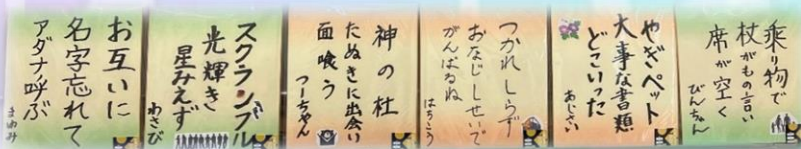 乗り物で
杖がもの言い
席が空く
びんちゃん
やぎペット
大事な書類
どこいった
あじさい
つかれしらず
おなじしせいで
がんばるね
はちこう
神の杜
たぬきに出会い
面喰う
つーちゃん
スクランブル
光輝き
星みえず
わさび
お互いに
名字忘れて
アダナ呼ぶ
まゆみ